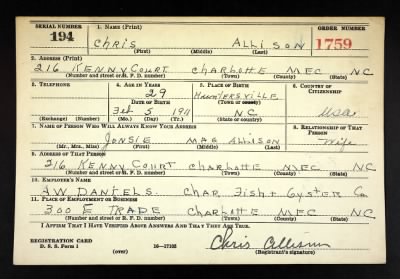 SERIAL NUMBER
1. NAME (Print)
ORDER NUMBER
194
CHRIS ALLISON
1759
(First) (Middle) (Last)
2. ADDRESS (Print)
216 KENNY COURT CHARLOTTE MEC NC
(Number and street or R. F. D. number) (Town) (County) (State)
3. TELEPHONE
4. AGE IN YEARS
5. PLACE OF BIRTH
6. COUNTRY OF CITIZENSHIP
29
HUNTERSVILLE
DATE OF BIRTH
(Town or county)
Feb 5 1911
NC
USA
(Exchange) (Number)
(Mo.) (Day) (Yr.)
(State or country)
7. NAME OF PERSON WHO WILL ALWAYS KNOW YOUR ADDRESS
8. RELATIONSHIP OF THAT PERSON
JONSIE MAE ALLISON
Wife
(Mr., Mrs., Miss) (First) (Middle) (Last)
9. ADDRESS OF THAT PERSON
216 KENNY COURT CHARLOTTE MEC NC
(Number and street or R. F. D. number) (Town) (County) (State)
10. EMPLOYER'S NAME
DANIELS. CHAR FISH & OYSTER Co
11. PLACE OF EMPLOYMENT OR BUSINESS
300 E TRADE CHARLOTTE MEC NC
(Number and street or R. F. D. number) (Town) (County) (State)
I AFFIRM THAT I HAVE VERIFIED ABOVE ANSWERS AND THAT THEY ARE TRUE.
REGISTRATION CARD
D. S. S. Form 1
16—17105
Chris Allison
(over)
(Registrant's signature)